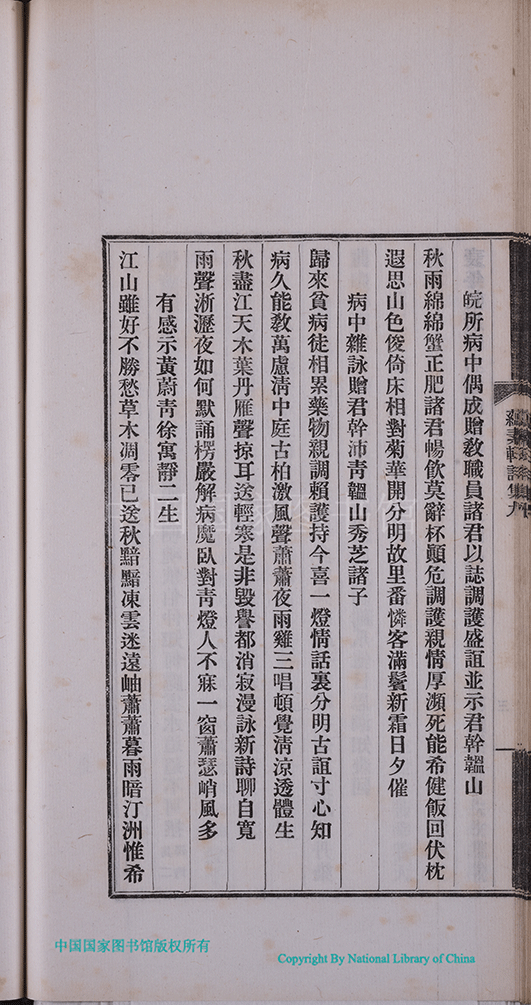 皖所病中偶成贈敎職員諸君以誌調護盛誼並示君幹韞山
秋雨綿綿蟹正肥諸君暢飲莫辭杯顚危調護親情厚瀕死能希健飯回伏枕
遐思山色俊倚床相對菊華開分明故里番憐客滿鬢新霜日夕催
病中雜詠贈君幹沛靑韞山秀芝諸子
歸來貧病徒相累藥物親調賴護持今喜一燈情話裏分明古誼寸心知
病久能敎萬慮淸中庭古柏激風聲蕭蕭夜雨雞三唱頓覺淸涼透體生
秋盡江天木葉丹雁聲掠耳送輕寒是非毀譽都消寂漫詠新詩聊自寬
雨聲淅瀝夜如何默誦楞嚴解病魔臥對靑燈人不寐一窗蕭瑟峭風多
有感示黃蔚靑徐寓靜二生
江山雖好不勝愁草木凋零已送秋黯黯凍雲迷遠岫蕭蕭暮雨暗汀洲惟希
中国国家图书馆版权所有
Copyright By National Library of China